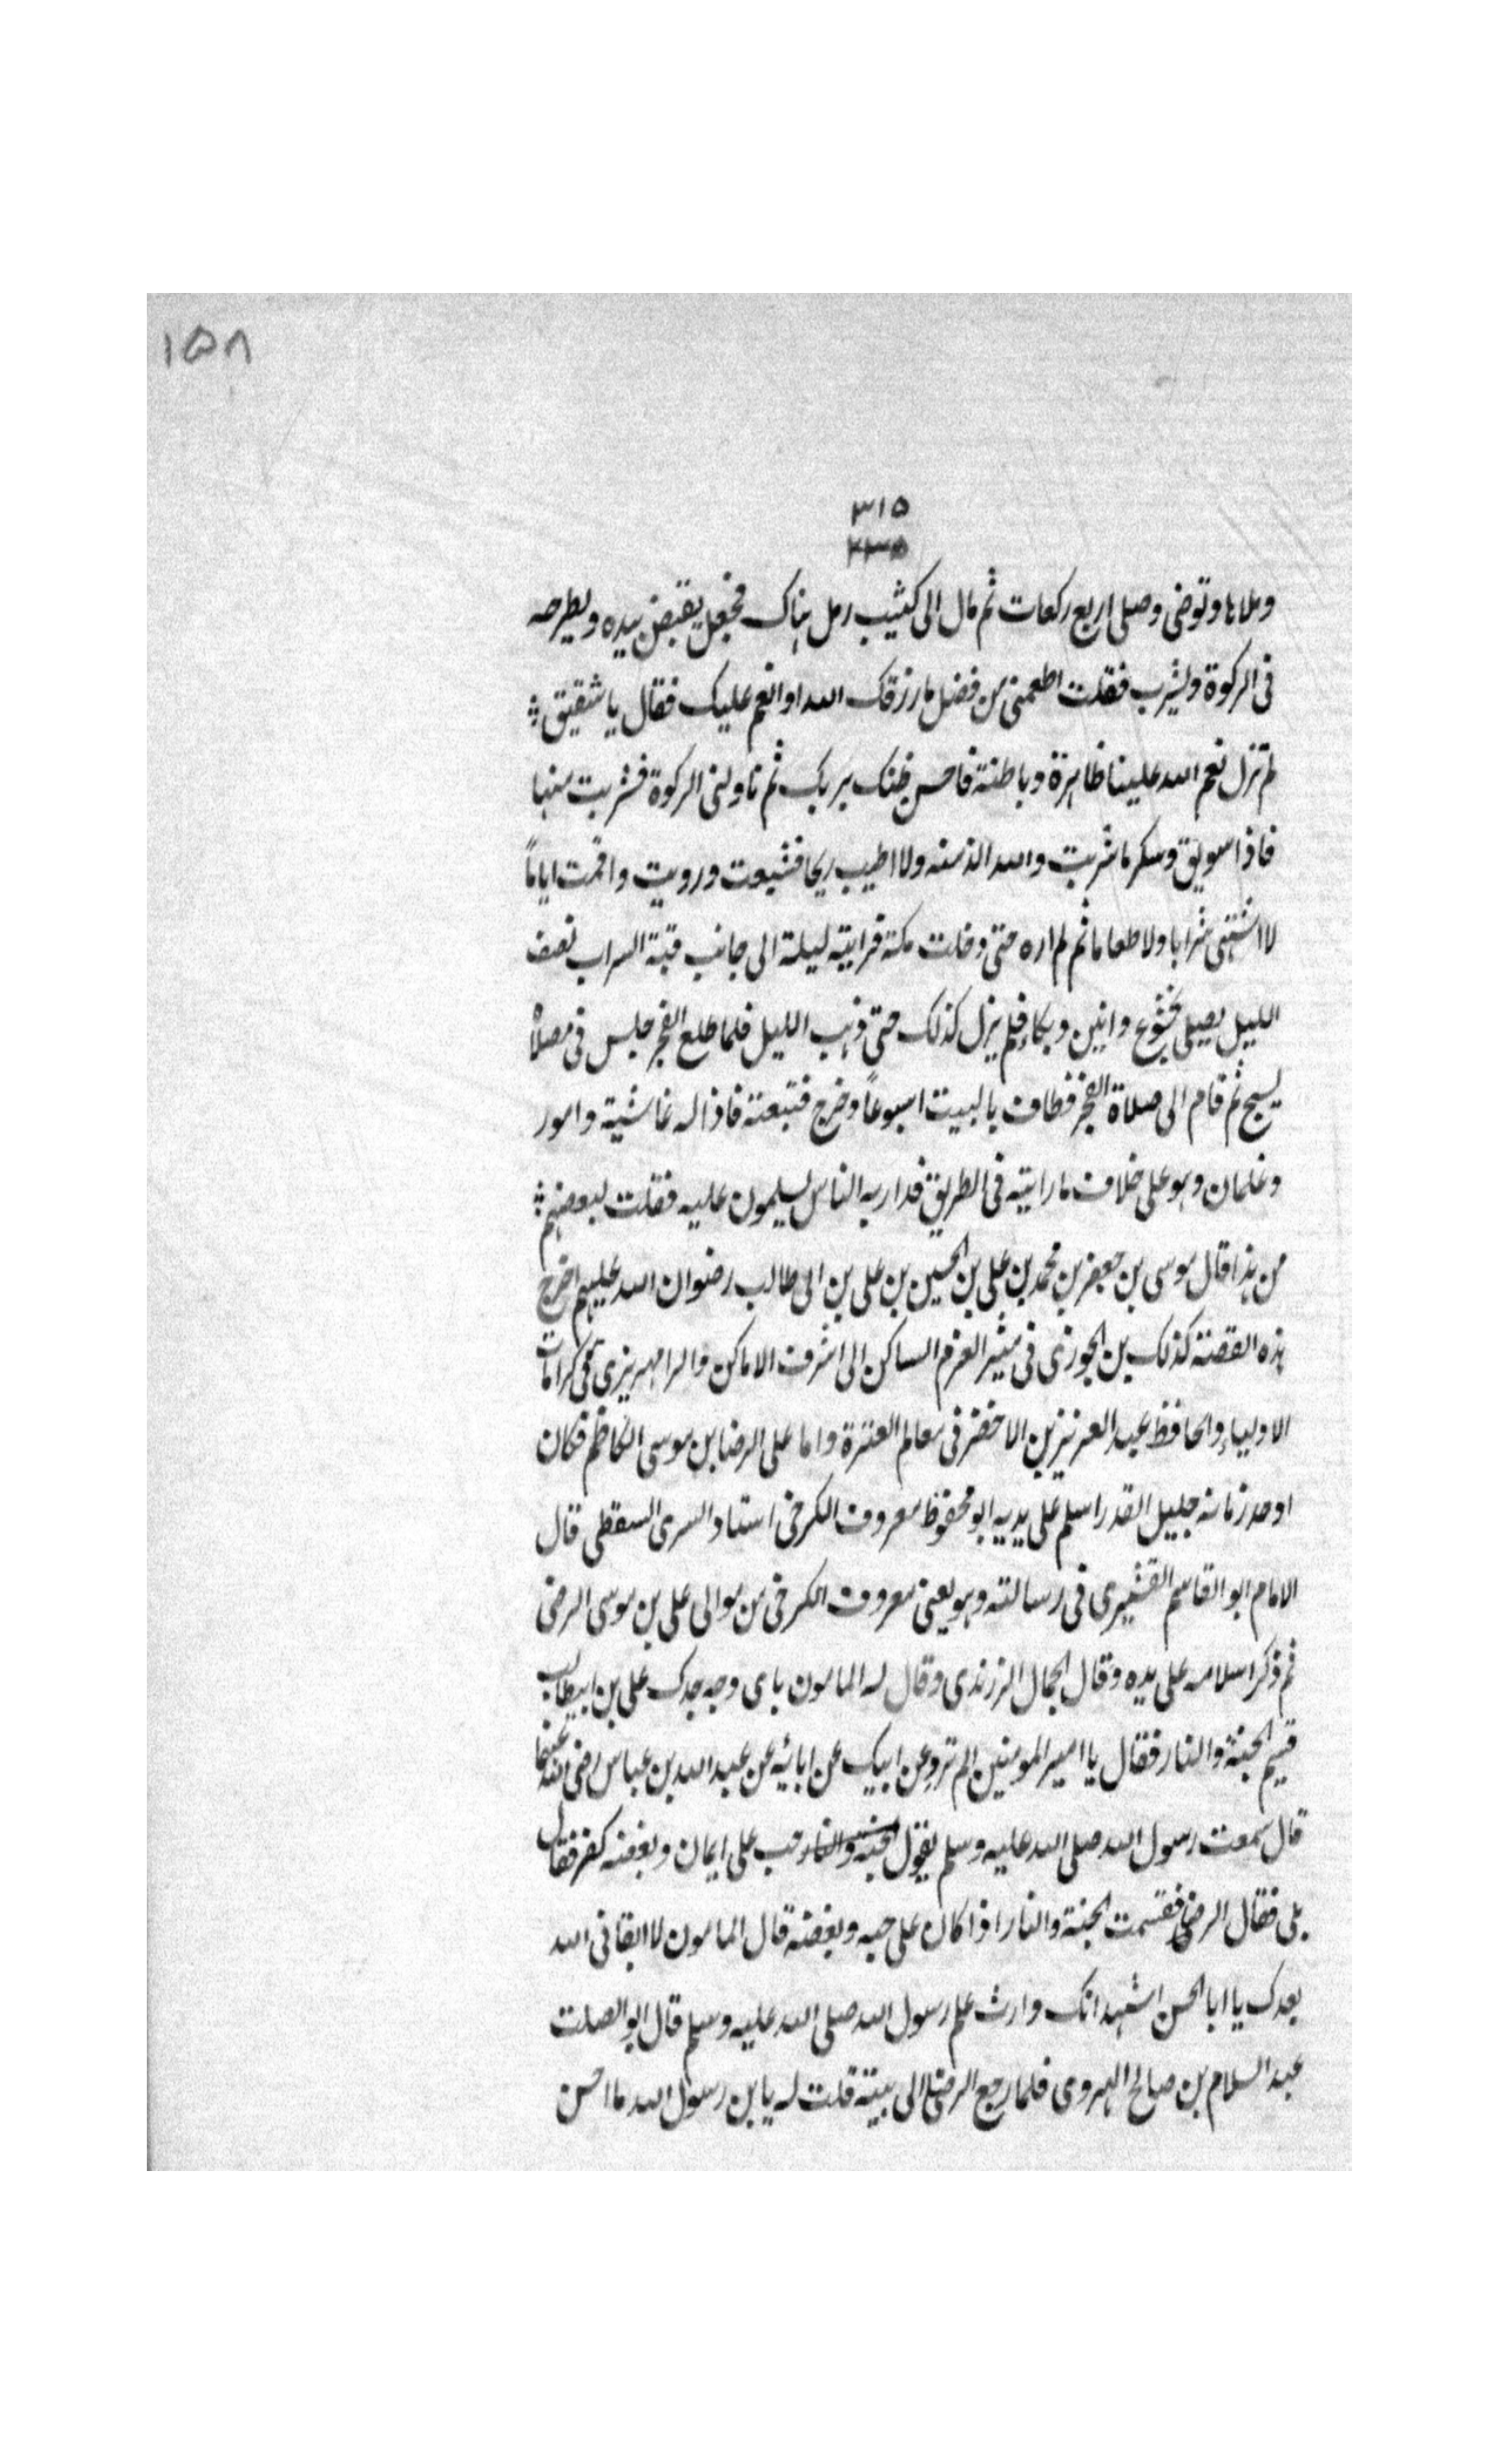 ١٥٨
٣١٥
وملاها وتوضى وصلى اربع ركعات ثم مال الى كثيب رمل هناك فجعل يقبض بيده ويطرحه
فى الركوة ويشرب فقلت اطعمنى من فضل ما رزقك الله او انعم عليك فقال يا شقيق
لم تزل نعم الله علينا ظاهرة وباطنة فاحسن ظنك بربك ثم ناولنى الركوة فشربت منها
فاذا سويق وسكر ما شربت والله الذ منه ولا اطيب ريحا فشبعت ورويت واقمت اياماً
لا اشتهى شرابا ولا طعاما ثم لم اره حتى دخلت مكة فرايته ليلة الى جانب قبة السراب نصف
الليل يصلى بخشوع وانين وبكاء فلم يزل كذلك حتى ذهب الليل فلما طلع الفجر جلس فى مصلاه
يسبح ثم قام الى صلاة الفجر فطاف بالبيت اسبوعاً وخرج فتبعته فاذا له غاشية وامور
وغلمان وهو على خلاف ما رايته فى الطريق فدار به الناس يسلمون عليه فقلت لبعضهم
من هذا قال موسى بن جعفر بن محمد بن على بن الحسين بن على بن ابى طالب رضوان الله عليهم اخرج
هذه القصة كذلك بن الجوزى فى مثير العزم الساكن الى اشرف الاماكن والرامهرمزى فى كرامات
الاولياء والحافظ عبد العزيز بن الاخضر فى معالم العترة واما على الرضا بن موسى الكاظم فكان
اوحد زمانه جليل القدر اسلم على يديه ابو محفوظ معروف الكرخى استاد السرى السقطى قال
الامام ابو القاسم القشيرى فى رسالته وهو يعنى معروف الكرخى من موالى على بن موسى الرضى
ثم ذكر اسلامه على يده وقال الجمال الزرندى وقال له المامون باى وجه جدك على بن ابيطالب
قسيم الجنة والنار فقال يا امير المومنين الم ترو عن ابيك عن ابائه عن عبد الله بن عباس رضى الله عنهما
قال سمعت رسول الله صلى الله عليه وسلم يقول حب على ايمان وبغضه كفر فقال
بلى فقال الرضى فقسمت الجنة والنار اذا كان على حبه وبغضه قال المامون لا ابقانى الله
بعدك يا ابا الحسن اشهد انك وارث علم رسول الله صلى الله عليه وسلم قال ابو الصلت
عبد السلام بن صالح الهروى فلما رجع الرضى الى بيته قلت له يا بن رسول الله ما احسن